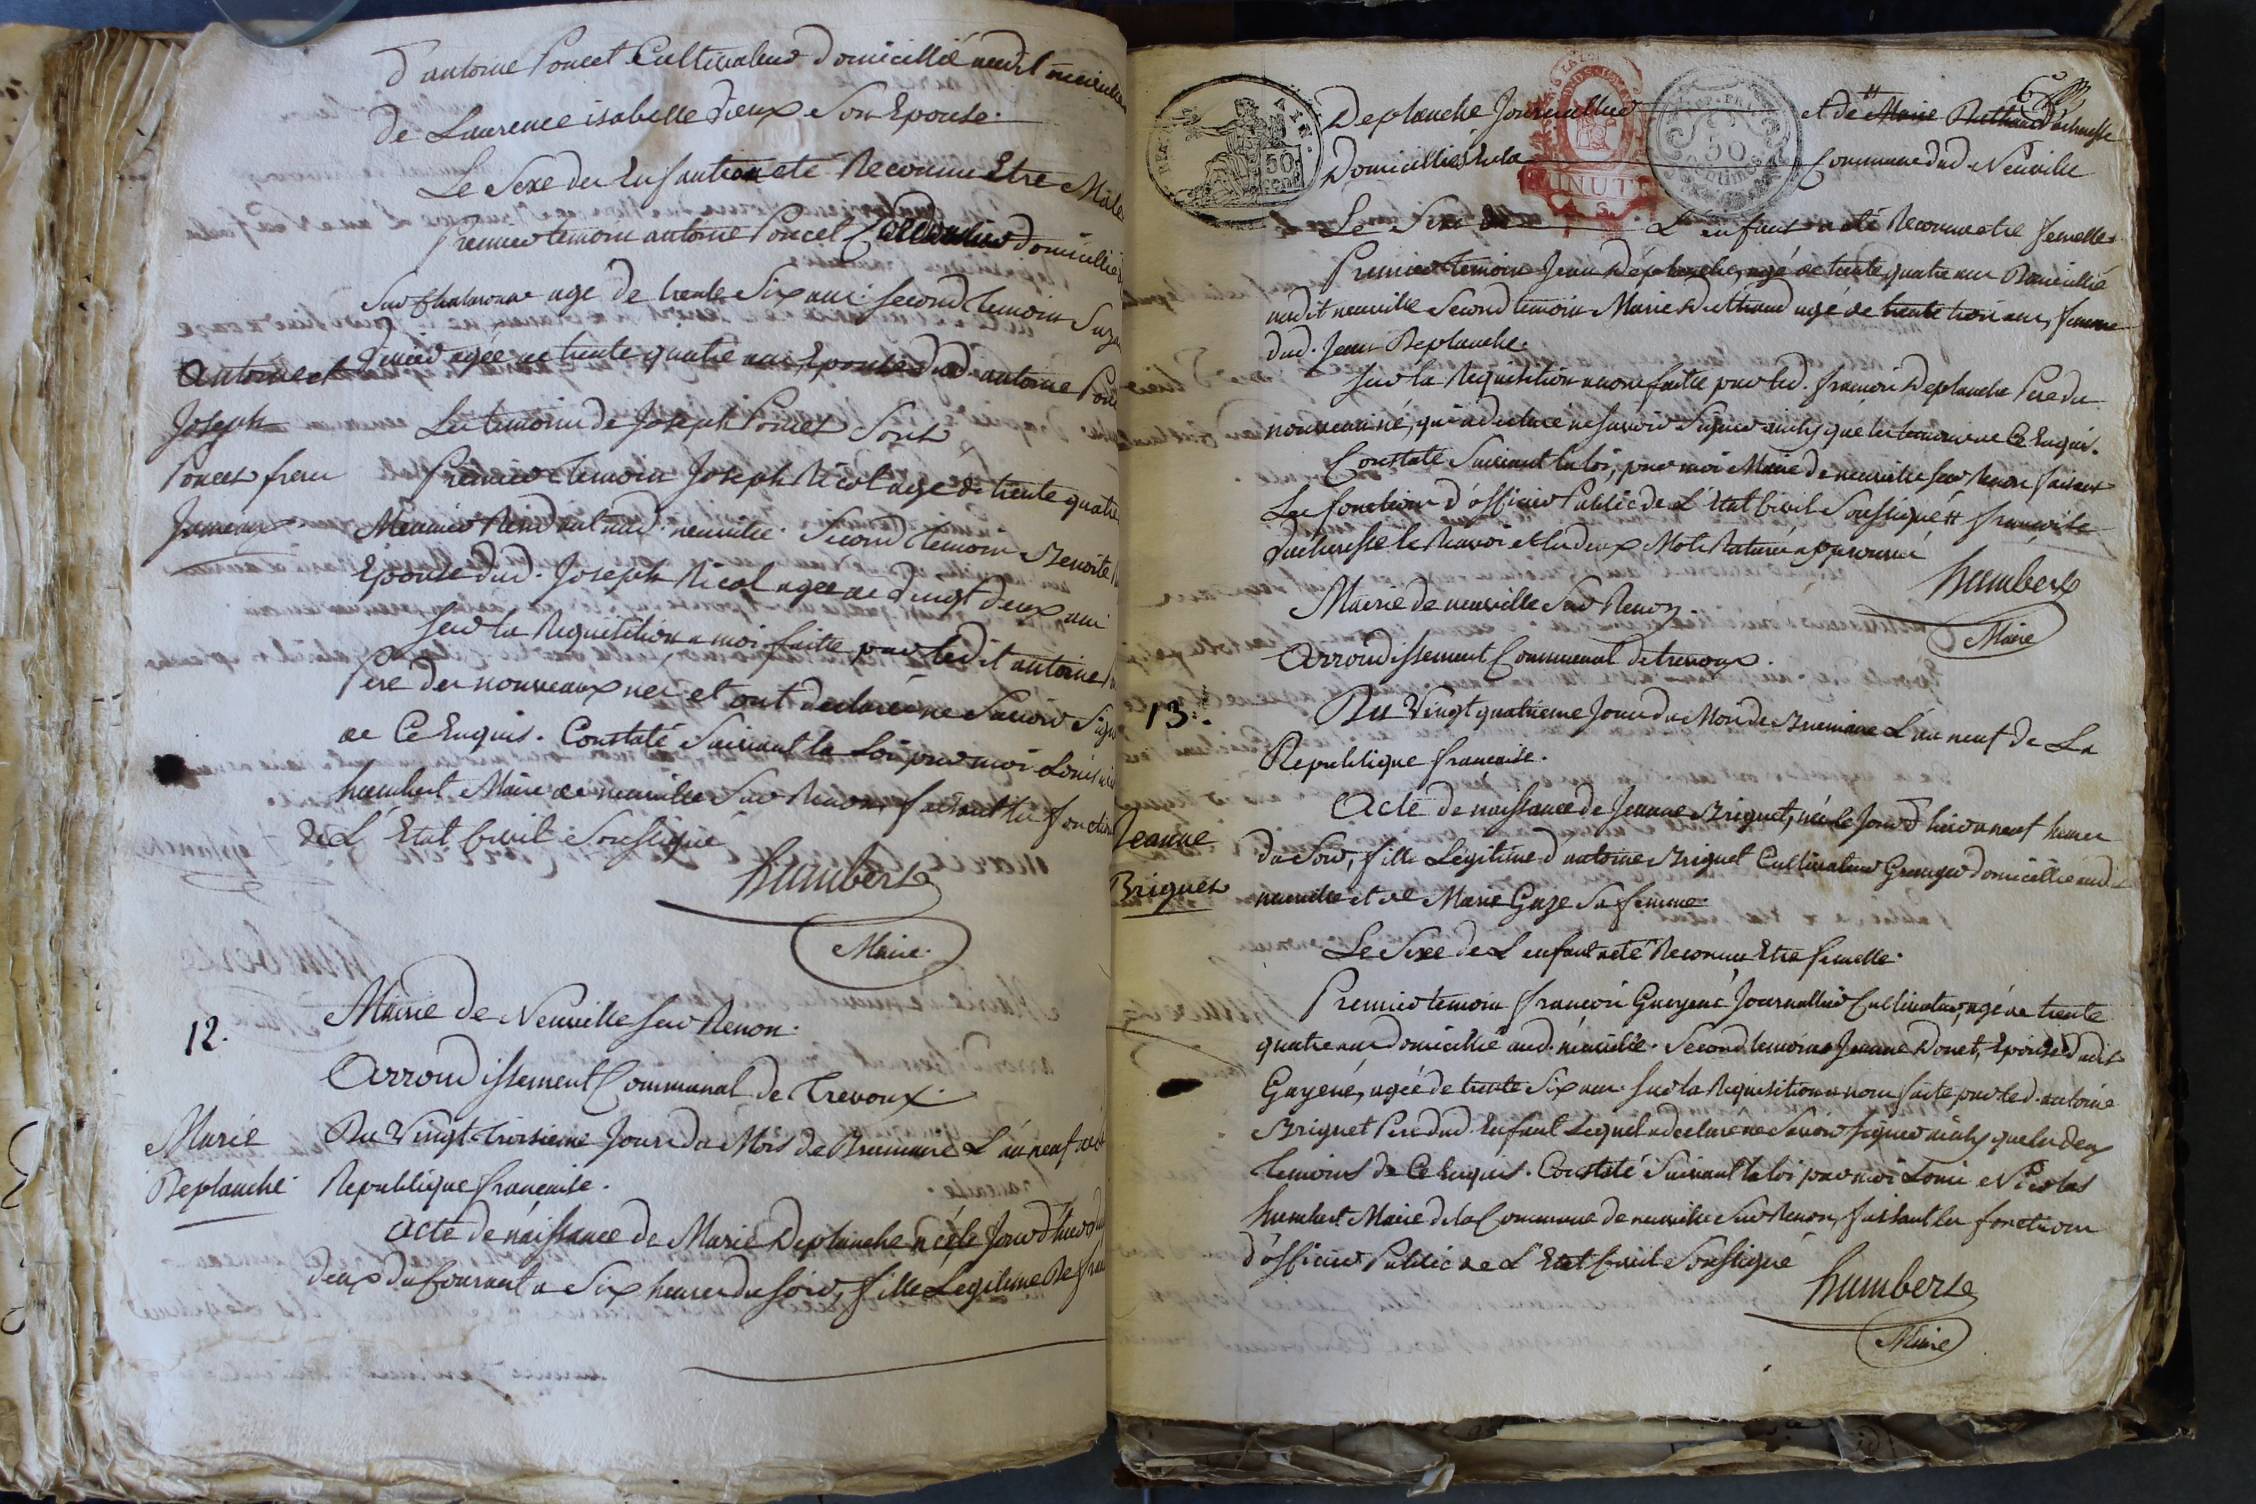 d'antoine Poncet Cultivateur Domicillié audit neuville
de Laurence isabelle Dieux Son Epouse.
Le Sexe des Enfants ont eté Reconnu Etre Male
Premier temoin antoine Poncet Cultivateur domicillié
Sur Chalaronne agé de trente Six ans. Second temoin Suza
agée de trente quatre ans, Epouse dud antoine Pon
Antoine et
Joseph
Poncet freres
Jumeaux
Les temoins de Joseph Poncet Sont
Premier temoin Joseph Nicol agé de trente quatre
Meunier Residant aud. neuville. Second temoin Benoite
Epouse dud. Joseph Nicol agée de Vingt Deux ans
Sur la Requisition a moi faitte par ledit antoine
Pere des nouveaux nés et ont declaré ne Savoir Sign
de Ce Enquis. Constaté Suivant la Loi par moi Louis
humbert Maire de neuville Sur Renon, faisant les fonction
de L'Etat Civil Soussigné
humbert
Maire.
12.
Mairie de Neuville Sur Renon.
Arrondissement Communal de Trevoux.
Marie
Deplanche.
Du Vingt troisieme Jour du Mois de Brumaire L'an neuf de la
Republique francaise.
Acte de naissance de Marie Deplanche née le Jour d'hier
deux du Courant a Six heures du Soir, fille Legitime De fran
6
Deplanche Journallier et de Marie Duthraud duchesse
Domicilliés En la Commune dud. Neuville
50
MINUTE
50
Centimes
Le Sexe de L'enfant a eté Reconnu etre femelle.
Premier temoin Jean Deplanche, agé de trente quatre ans Domicillié
audit neuville Second temoin Marie Duthraud agé de trente trois ans, femme
dud. Jean Deplanche.
Sur la Requisition a nous faitte par led. francois Deplanche Pere du
nouveau né, qui a declaré ne Savoir Signer ainsy que les temoins de Ce Enquis.
Constaté Suivant la loi, par moi Maire de neuville Sur Renon faisant
Les fonctions d'officier Public de L'Etat Civil Soussigné # francoise
duchesse le Renvoi et les deux Mots Raturé approuvé
humbert
Maire
Mairie de neuville Sur Renon.
Arrondissement Communal de trevoux.
13.
Du Vingt quatrieme Jour du Mois de Brumaire L'an neuf de La
Republique francaise.
Jeanne
Briguet
Acte de naissance de Jeanne Briguet, née le Jour d'hier a neuf heures
du Soir, fille Legitime d'antoine Briguet Cultivateur Granger domicillié aud.
neuville et de Marie Gaze Sa femme.
Le Sexe de L'enfant a eté Reconnu Etre femelle.
Premier temoin francois Guyené Journallier Cultivateur, agé de trente
quatre ans Domicillié aud. neuville. Second temoins Jeanne Donet, Epouse dudit
Guyené, agée de trente Six ans. Sur la Requisition a nous faite par led. antoine
Briguet Pere dud. Enfant Lequel a declaré ne Savoir Signer ainsy que les deux
temoins de Ce Enquis. Constaté Suivant la loi par moi Louis Nicolas
humbert Maire de la Commune de neuville Sur Renon, faisant les fonctions
d'officier Public de L'Etat Civil Soussigné
humbert
Maire